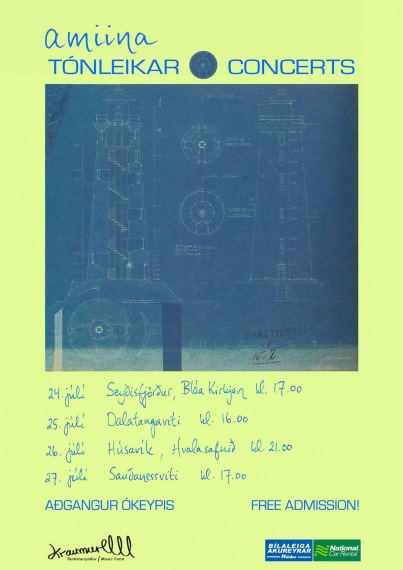 amiina
TÓNLEIKAR CONCERTS
VITASTJÓRNIN
No. 2
24. júlí Seyðisfjörður, Bláa Kirkjan kl. 17.00
25. júlí Dalatangaviti kl. 16.00
26. júlí Húsavík, Hvalasafnið kl. 21.00
27. júlí Sauðanessviti kl. 17.00
AÐGANGUR ÓKEYPIS FREE ADMISSION!
Kraumur
Tónlistarsjóður / Music Fund
BÍLALEIGA
AKUREYRAR
Höldur
National
Car Rental